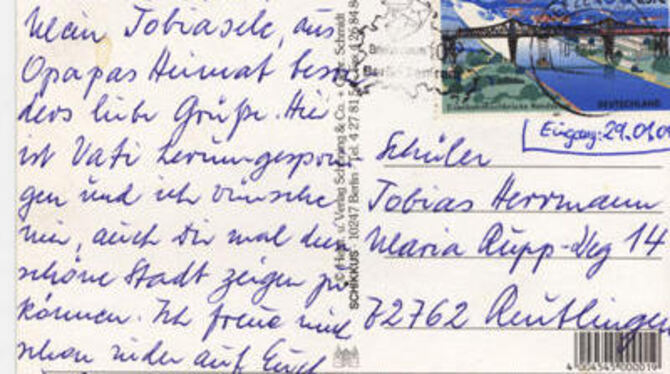 Mein Tobiasele, aus
Opapas Heimat beson
ders liebe Grüße. Hier
ist Vati herumgesprun
gen und ich wünsche
mir, auch Dir mal die
schöne Stadt zeigen zu
können. Ich freue mich
schon wieder auf Euch
Verlag Schöning & Co. + Schmidt
SCHIKKUS 10247 Berlin Tel. 4 27 81
Berlin Zentrum
DEUTSCHLAND
Eingang: 29.01.0
Schüler
Tobias Herrmann
Maria Rupp-Weg 14
72762 Reutlingen
4 004545 000019